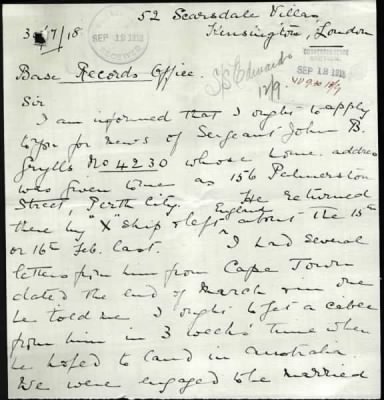 52 Scarsdale Villas
Kensington, London
3 /7/18
SEP 18 1918
RECEIVED
SEP 18 1918
Base Records Office.
12/9
Sir
I am informed that I ought to apply
to you for news of Sergeant John B.
Grylls No 4230 whose home address
was given to me as 156 Palmerston
Street, Perth City. He returned
there by "X" ship & left England about the 15th
or 16th Feb. last. I had several
letters from him from Cape Town
dated the end of March & in one
he told me I ought to get a cable
from him in 3 weeks' time when
he hoped to land in Australia.
We were engaged to be married